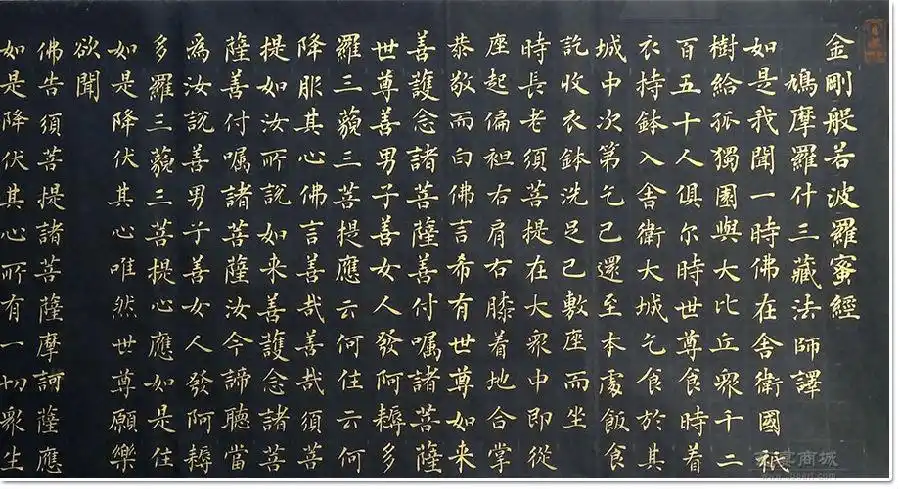 金剛般若波羅蜜經
鳩摩羅什三藏法師譯
如是我聞一時佛在舍衛國祇
樹給孤獨園與大比丘眾千二
百五十人俱尔時世尊食時着
衣持鉢入舍衛大城乞食於其
城中次第乞已還至本處飯食
訖收衣鉢洗足已敷座而坐
時長老須菩提在大眾中即從
座起偏袒右肩右膝着地合掌
恭敬而白佛言希有世尊如来
善護念諸菩薩善付嘱諸菩薩
世尊善男子善女人發阿耨多
羅三藐三菩提應云何住云何
降服其心佛言善哉善哉須菩
提如汝所說如来善護念諸菩
薩善付嘱諸菩薩汝今諦聽當
為汝說善男子善女人發阿耨
多羅三藐三菩提心應如是住
如是降伏其心唯然世尊願樂
欲聞
佛告須菩提諸菩薩摩訶薩應
如是降伏其心所有一切眾生
商城